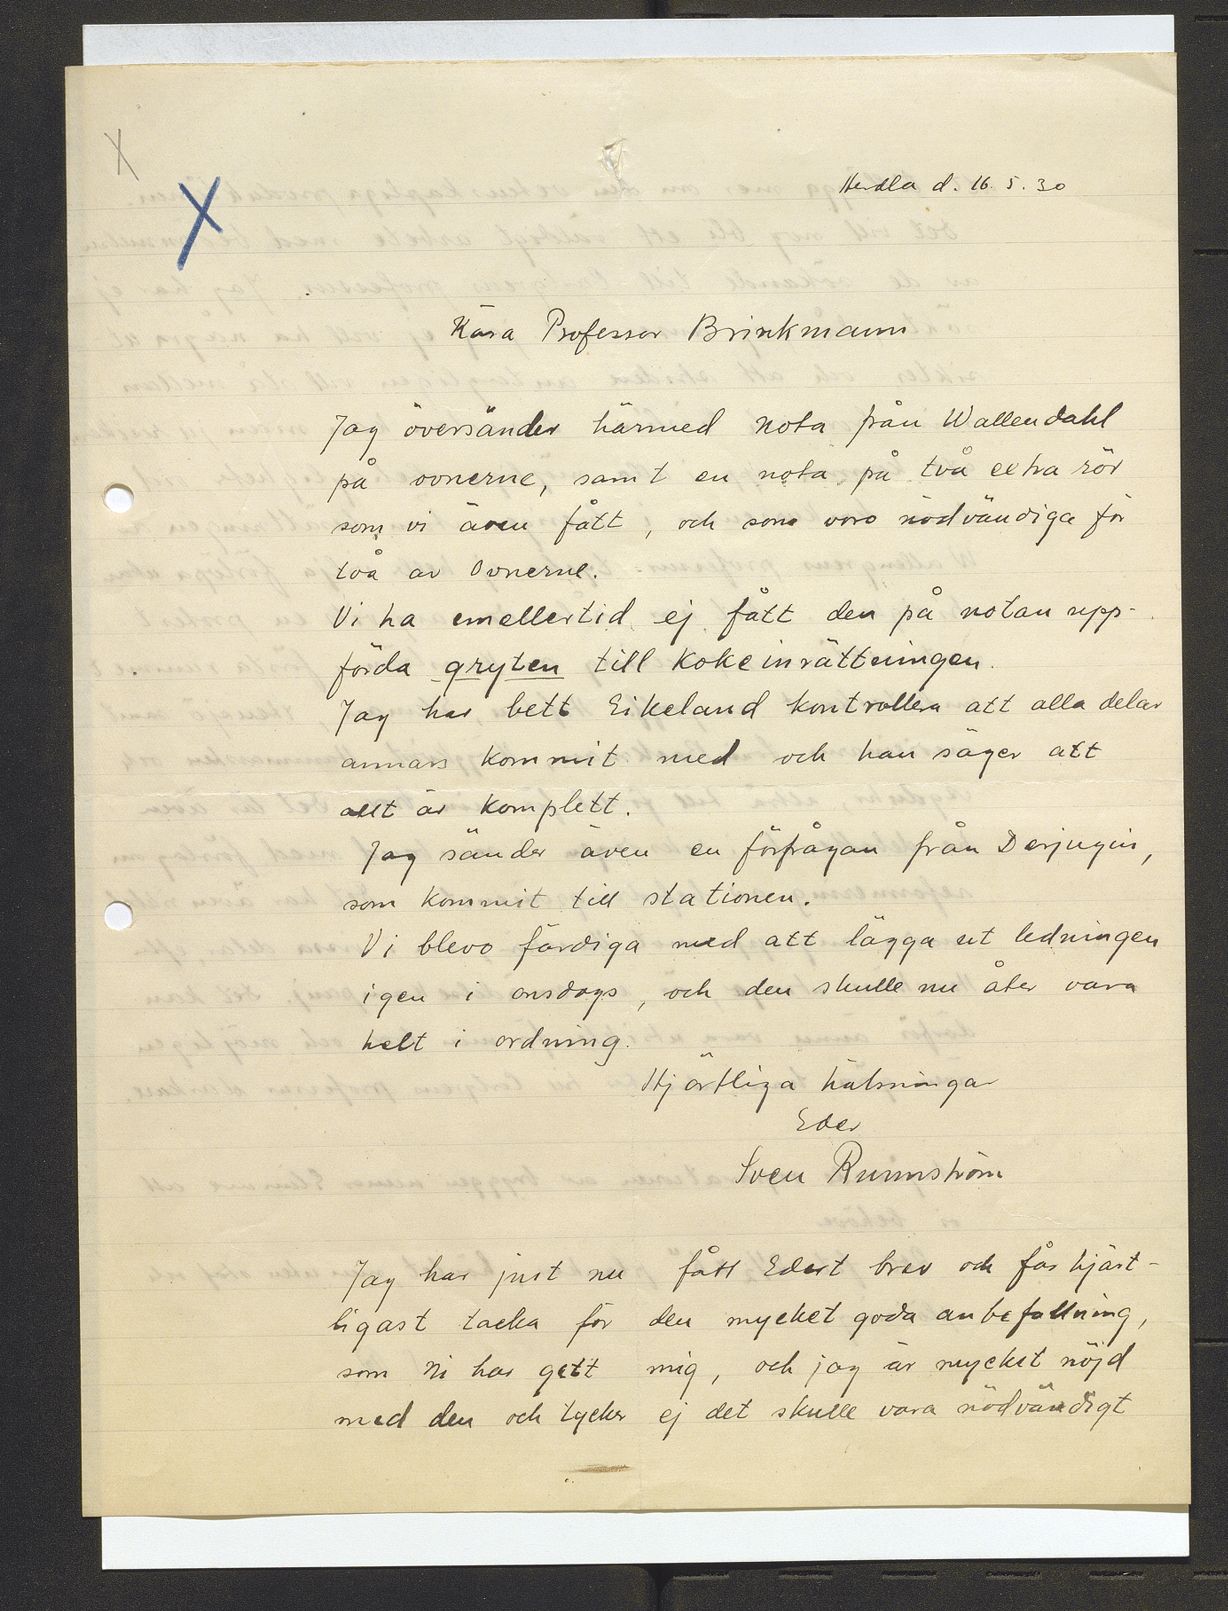 Herdla d. 16.5.30
Kära Professor Brinkmann
Jag översänder härmed nota från Wallendahl
på ovnerne, samt en nota på två extra rör
som vi även fått, och som voro nödvändiga för
två av Ovnerne.
Vi ha emellertid ej fått den på notan upp-
förda gryten till kokeinrättningen.
Jag har bett Eikeland kontrollera att alla delar
annars kommit med och han säger att
allt är komplett.
Jag sänder även en förfrågan från Derjugin,
som kommit till stationen.
Vi blevo färdiga med att lägga ut ledningen
igen i onsdags, och den skulle nu åter vara
helt i ordning.
Hjärtliga hälsningar
Eder
Sven Runnström
Jag har just nu fått Edert brev och får hjärt-
ligast tacka för den mycket goda anbefallning,
som Ni har gett mig, och jag är mycket nöjd
med den och tycker ej det skulle vara nödvändigt